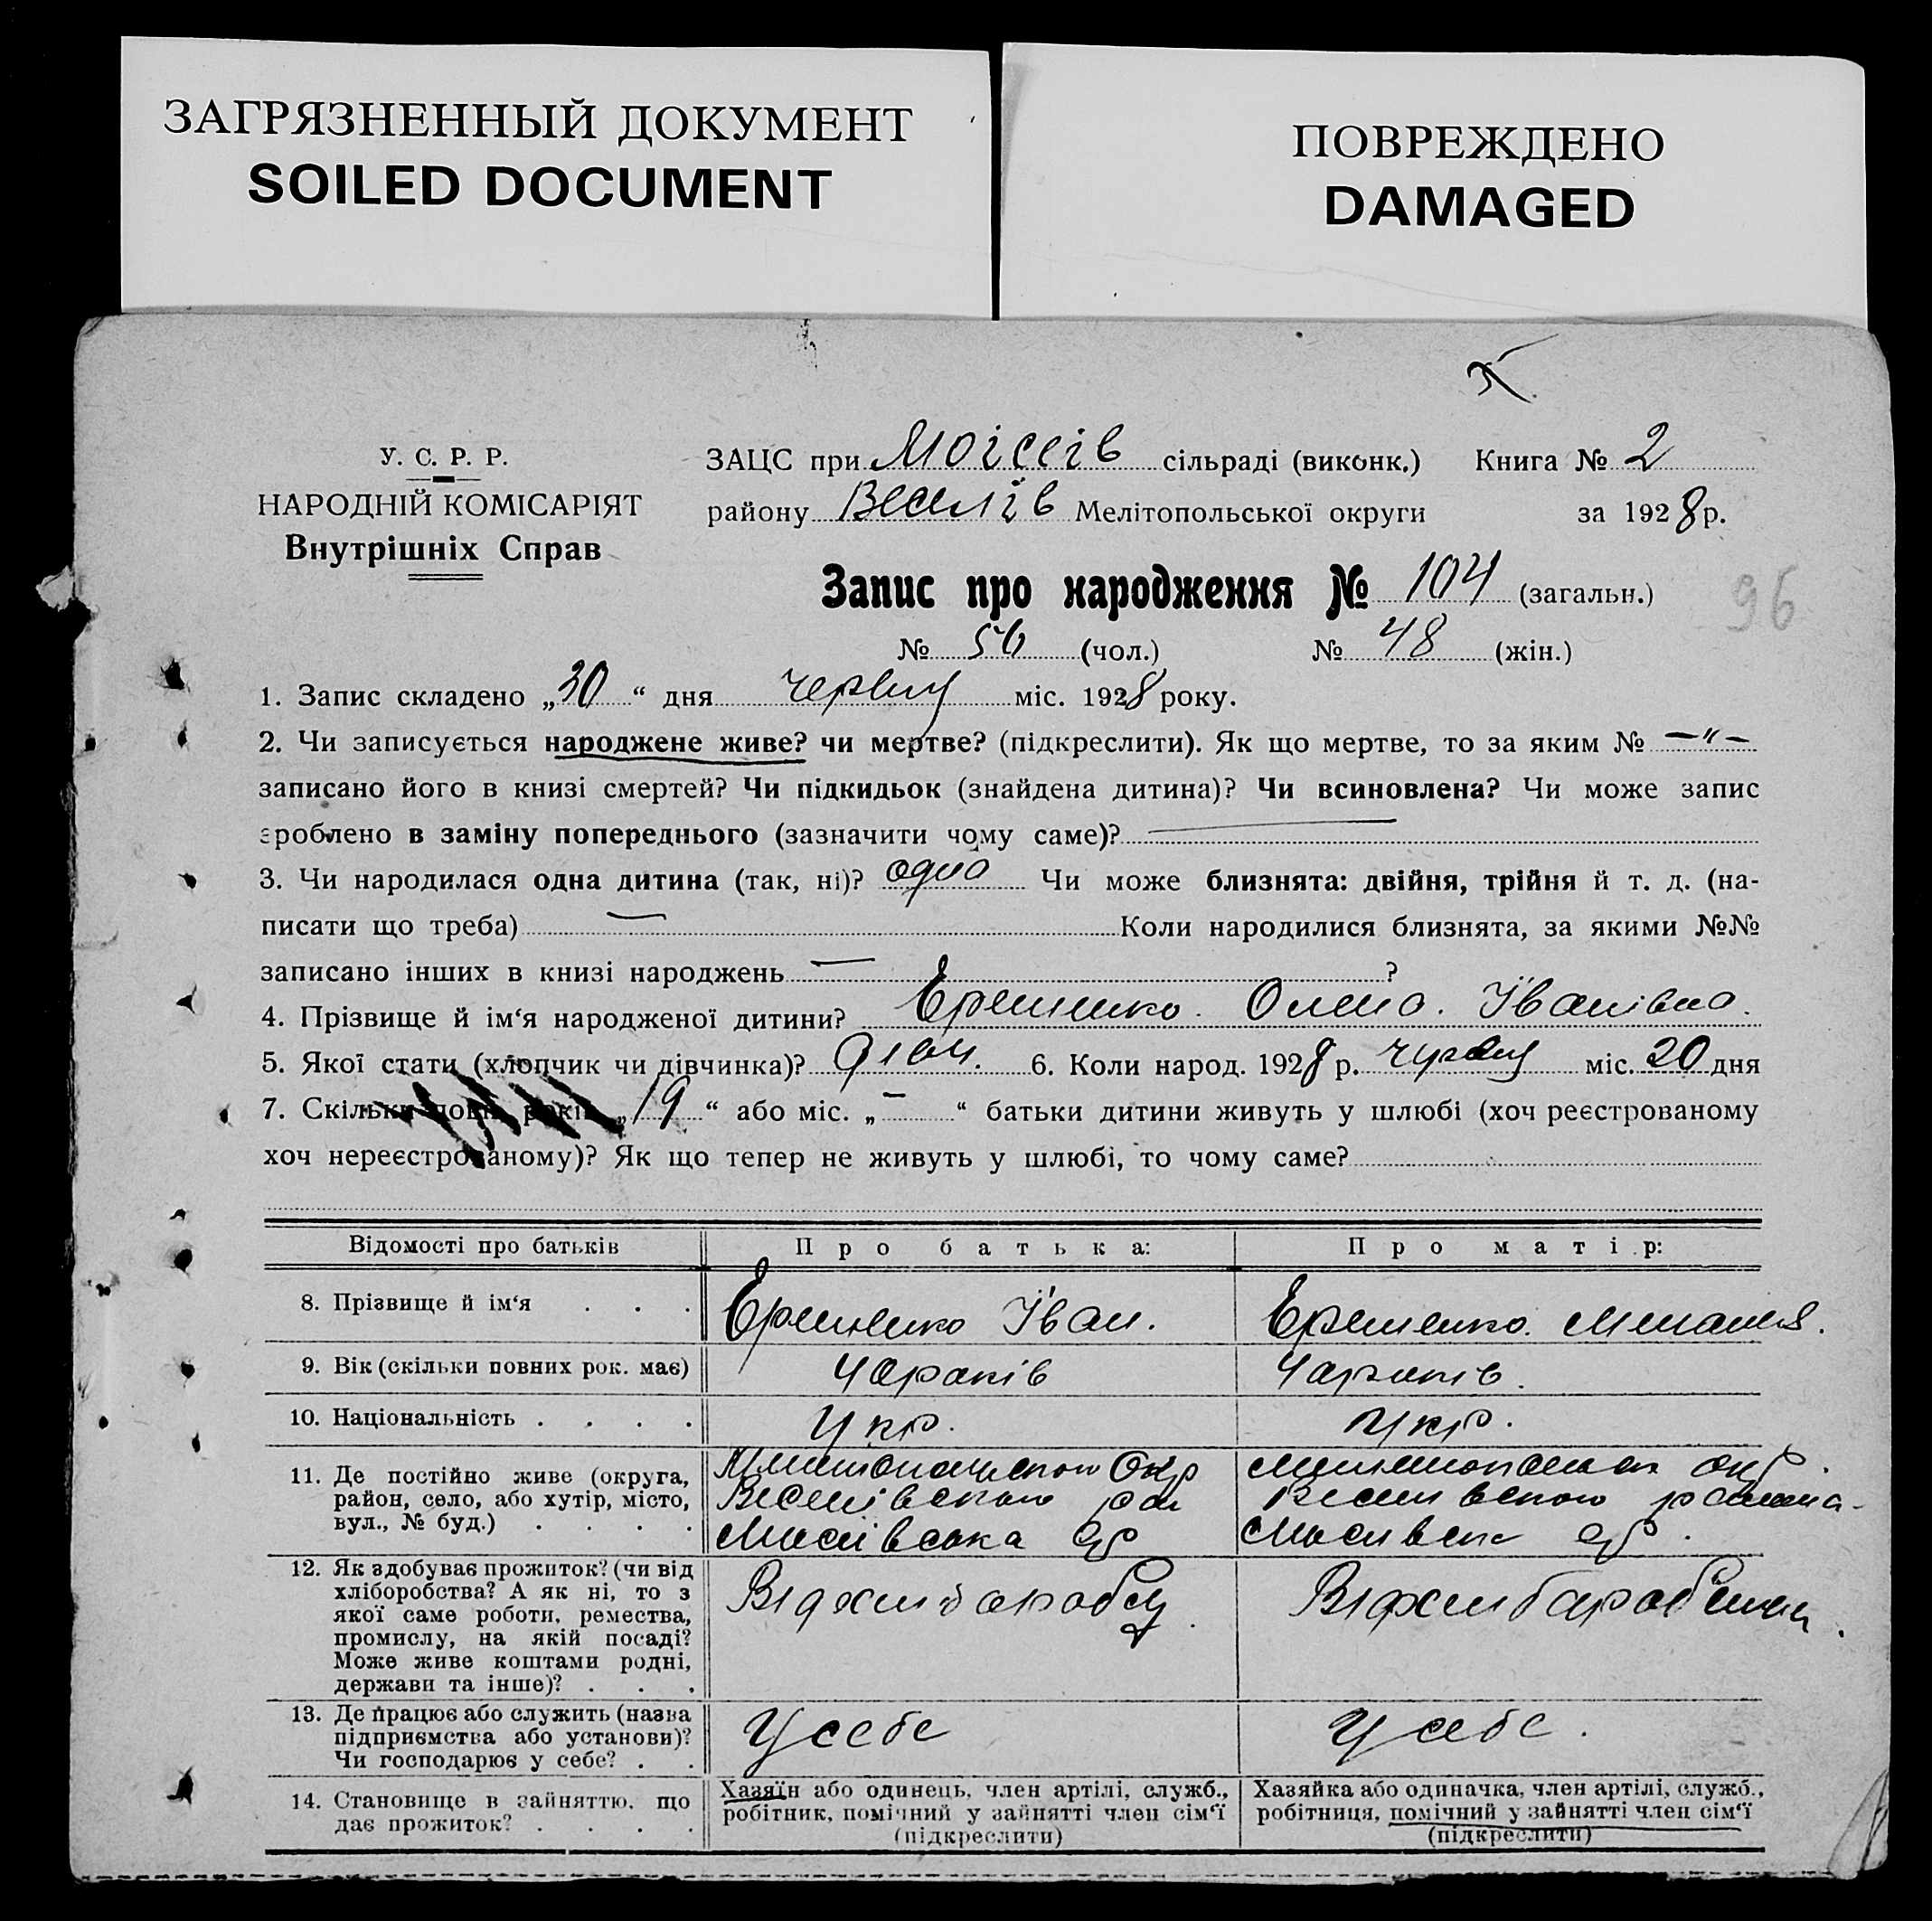 ЗАГРЯЗНЕННЫЙ ДОКУМЕНТ
SOILED DOCUMENT
ПОВРЕЖДЕНО
DAMAGED
У. С. Р. Р.
НАРОДНІЙ КОМІСАРІЯТ
Внутрішніх Справ
ЗАЦС при Моісеїв сільраді (виконк.) Книга № 2
району Веселів Мелітопольської округи за 1928 р.
Запис про народження № 104 (загальн.)
96
№ 56 (чол.) № 48 (жін.)
1. Запис складено „30“ дня червня міс. 1928 року.
2. Чи записується народжене живе? чи мертве? (підкреслити). Як що мертве, то за яким № —"—
записано його в книзі смертей? Чи підкидьок (знайдена дитина)? Чи всиновлена? Чи може запис
зроблено в заміну попереднього (зазначити чому саме)? —
3. Чи народилася одна дитина (так, ні)? одно Чи може близнята: двійня, трійня й т. д. (на-
писати що треба) — Коли народилися близнята, за якими №№
записано інших в книзі народжень — ?
4. Прізвище й ім‘я народженої дитини? Еременко. Олена. Іванівна.
5. Якої стати (хлопчик чи дівчинка)? дівч. 6. Коли народ. 1928 р. червня міс. 20 дня
7. Скільки повн. років „19“ або міс. „—“ батьки дитини живуть у шлюбі (хоч реєстрованому
хоч нереєстрованому)? Як що тепер не живуть у шлюбі, то чому саме?
Відомості про батьків Про батька: Про матір:
8. Прізвище й ім‘я . . . Еременко Іван. Еременко.
9. Вік (скільки повних рок. має) 40 років 40 років.
10. Національність . . . . Укр. Укр.
11. Де постійно живе (округа, район, село, або хутір, місто, вул., № буд.) . . . .
Окр Окр.
Веселівского рай Веселівского
с/р с/р.
12. Як здобуває прожиток? (чи від хліборобства? А як ні, то з якої саме роботи, ремества, промислу, на якій посаді? Може живе коштами родні, держави та інше)? . . .
Від хлиборобсу Від хлиборобсива.
13. Де працює або служить (назва підприємства або установи)? Чи господарює у себе? . .
У себе У себе.
14. Становище в зайняттю, що дає прожиток? . . . .
Хазяїн або одинець, член артілі, служб., робітник, помічний у зайнятті член сім‘ї (підкреслити)
Хазяйка або одиначка, член артілі, служб., робітниця, помічний у зайнятті член сім‘ї (підкреслити)